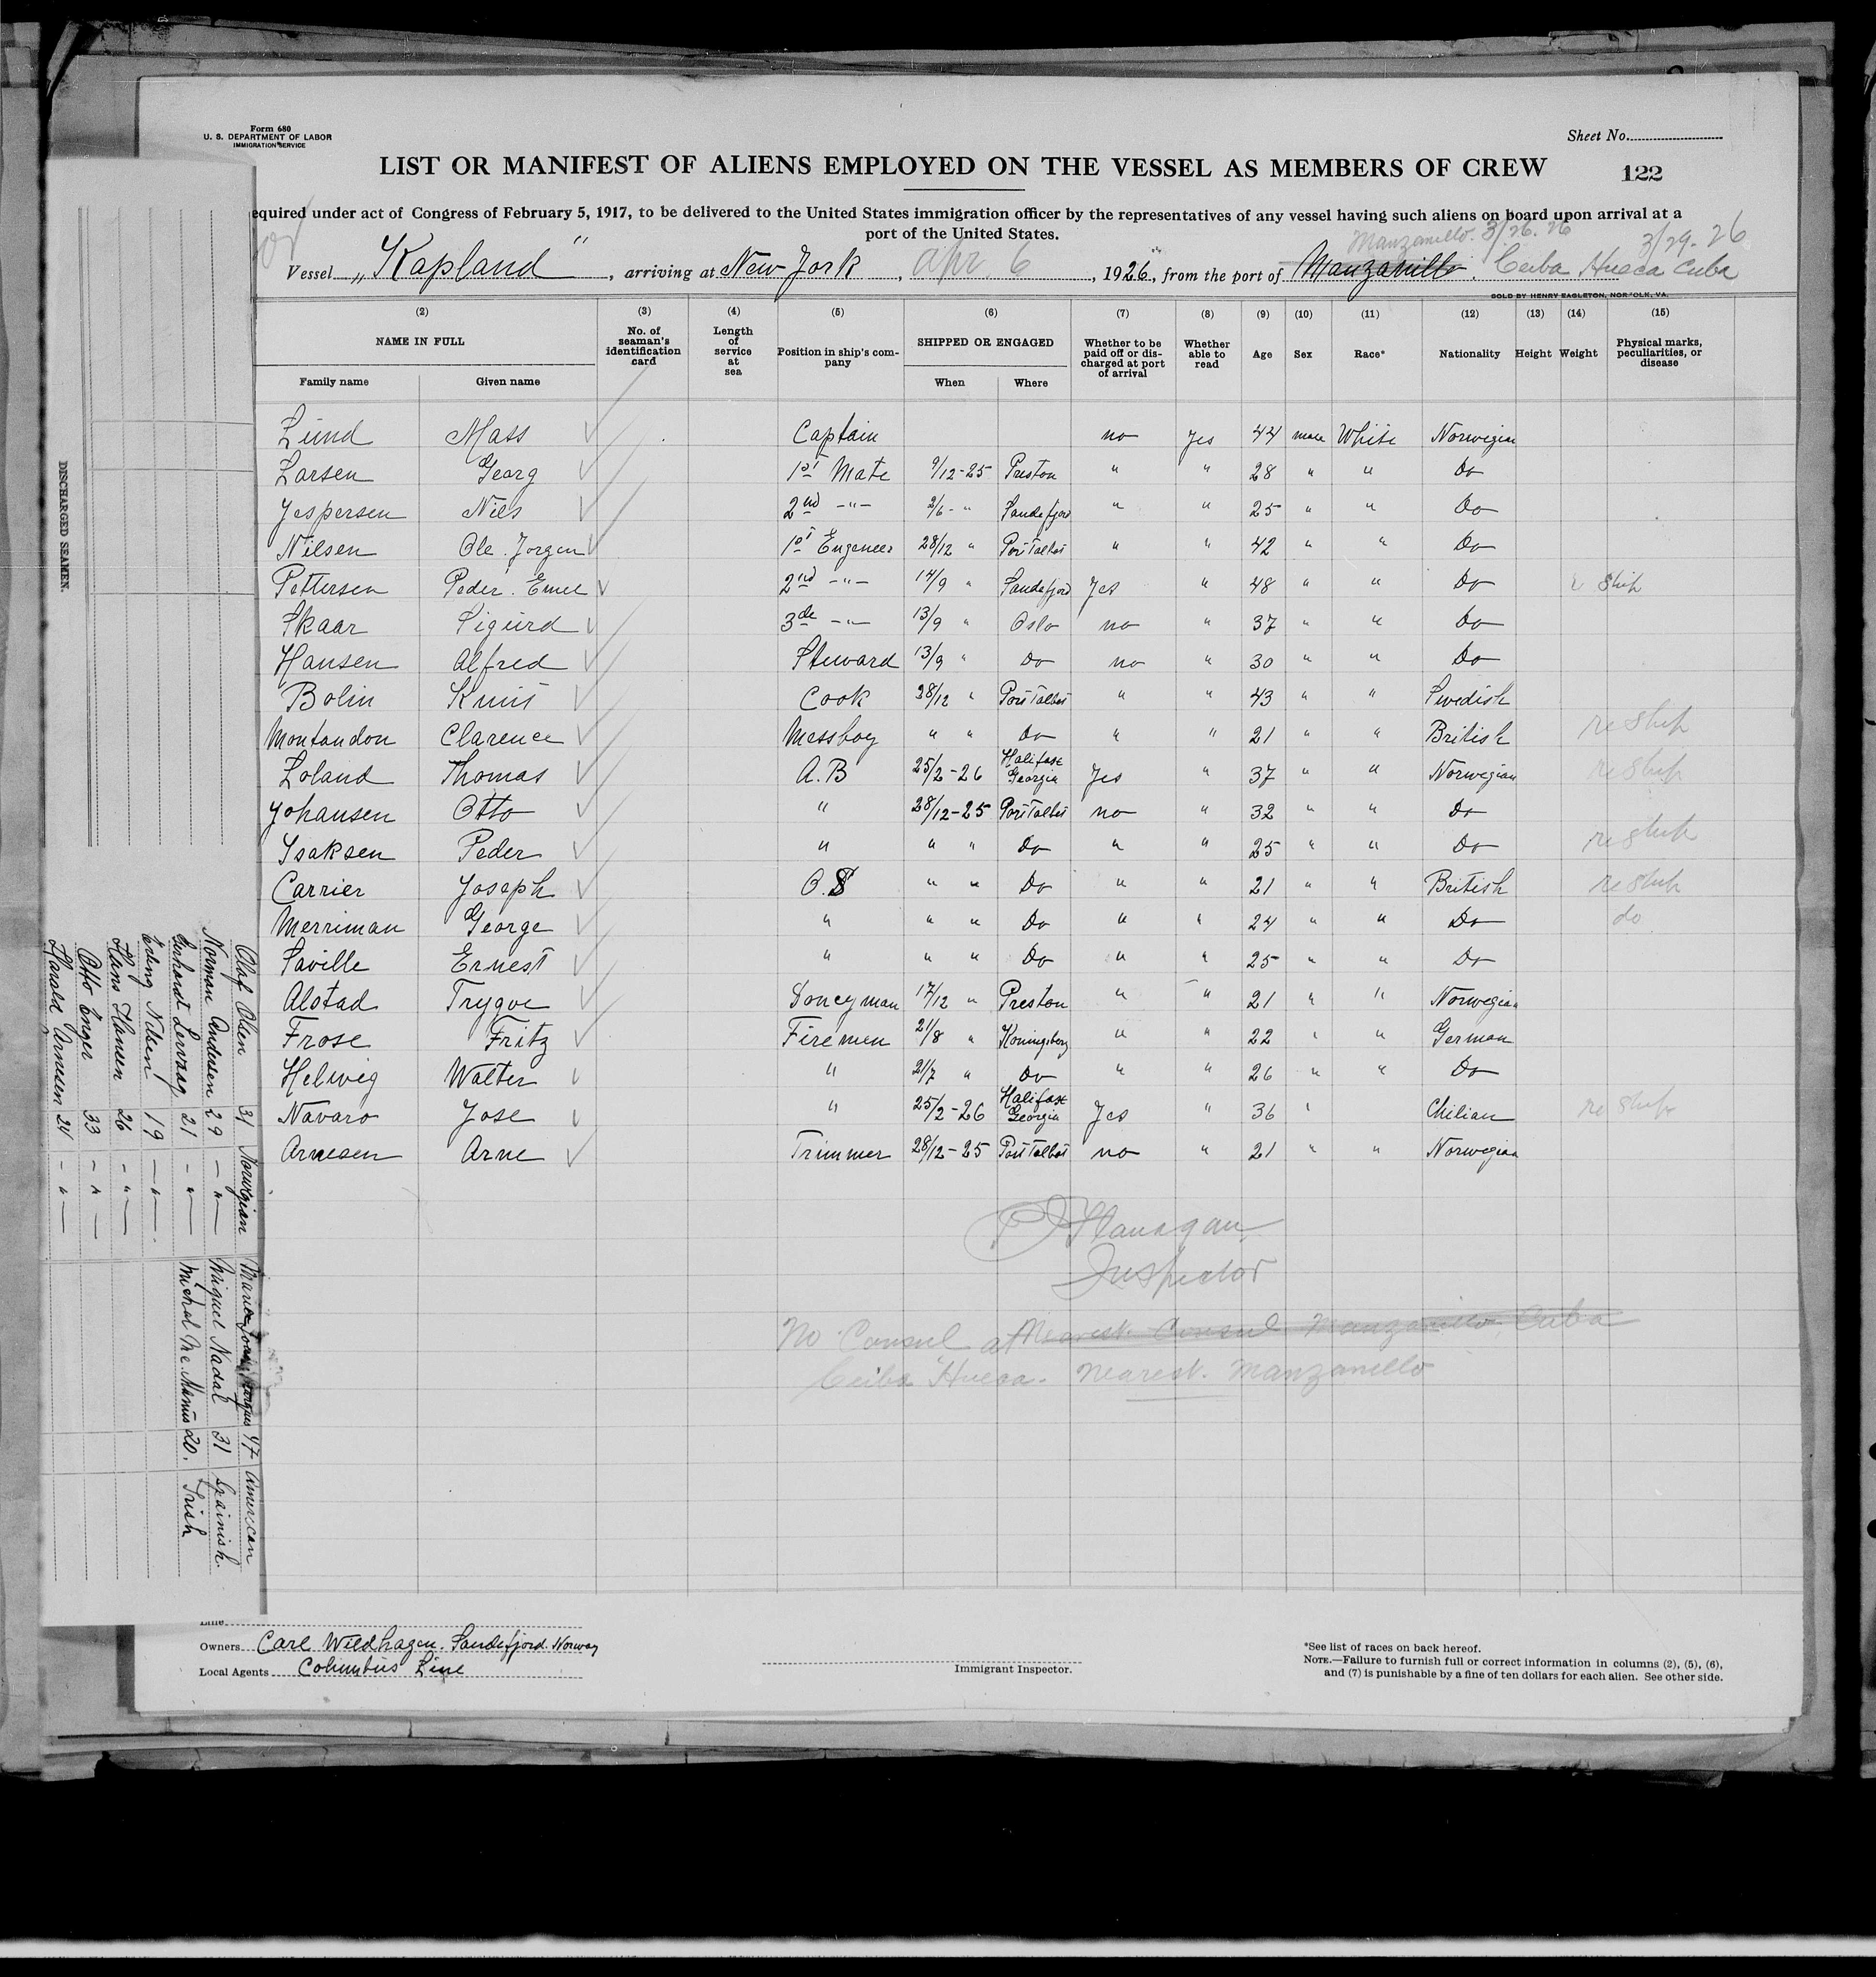 Form 680
U. S. DEPARTMENT OF LABOR
IMMIGRATION SERVICE
Sheet No.
LIST OR MANIFEST OF ALIENS EMPLOYED ON THE VESSEL AS MEMBERS OF CREW
122
equired under act of Congress of February 5, 1917, to be delivered to the United States immigration officer by the representatives of any vessel having such aliens on board upon arrival at a
port of the United States.
Manzanillo. 3/26.26 3/29-26
Vessel „Kapland“, arriving at New York, Apr 6, 1926, from the port of Manzanillo. Ceiba Hueca Cuba
SOLD BY HENRY EAGLETON, NORFOLK, VA.
(2) (3) (4) (5) (6) (7) (8) (9) (10) (11) (12) (13) (14) (15)
NAME IN FULL No. of seaman's identification card Length of service at sea Position in ship's company SHIPPED OR ENGAGED Whether to be paid off or discharged at port of arrival Whether able to read Age Sex Race* Nationality Height Weight Physical marks, peculiarities, or disease
Family name Given name When Where
Lund Mass Captain no Yes 44 male White Norwegian
Larsen Georg 1st Mate 9/12-25 Preston " " 28 " " Do
Jespersen Niels 2nd -"- 2/6- " Sandefjord " " 25 " " Do
Nilsen Ole. Jorgen 1st Engeneer 28/12 " Port Talbot " " 42 " " Do
Pettersen Peder. Emel 2nd -"- 14/9 " Sandefjord Yes " 48 " " Do ship
Skaar Sigurd 3de -"- 13/9 " Oslo no " 37 " " Do
Hansen Alfred Steward 13/9 " Do no " 30 " " Do
Bolin Knut Cook 28/12 " Port Talbot " " 43 " " Swedish
Montandon Clarence Messboy " " Do " " 21 " " British reship
Loland Thomas A.B 25/2-26 Halifax Georgia Yes " 37 " " Norwegian reship
Johansen Otto " 28/12-25 Port Talbot no " 32 " " Do
Isaksen Peder " " " Do " " 25 " " Do reship
Carrier Joseph O.S " " Do " " 21 " " British reship
Merriman George " " " Do " " 24 " " Do do
Saville Ernest " " " Do " " 25 " " Do
Alstad Trygve Doneyman 17/12 " Preston " " 21 " " Norwegian
Frose Fritz Firemen 21/8 " Koningsberg " 22 " " German
Helwig Walter " 21/7 " Do " " 26 " " Do
Navaro Jose " 25/2-26 Halifax Georgia Yes " 36 " Chilian reship
Arnesen Arne Trimmer 28/12-25 Port Talbot no " 21 " " Norwegian
Flanagan
Inspector
No Consul at Nearest Consul Manzanillo Cuba
Ceiba Hueca. Nearest. Manzanillo
DISCHARGED SEAMEN.
Olaf Olsen 31 Norwegian
Norman Andersen 29 -"-
Lervaag 21 -"-
Erling Nilsen 19 -"-
Hans Hansen 26 -"-
Otto Enger 33 -"-
Harald Arnesen 24 -"-
47 American
Miguel Nadal 31 Spainish.
Michal Mc.Manus 20. Irish
Line
Owners Carl Wildhagen. Sandefjord. Norway
Local Agents Columbus Line
Immigrant Inspector.
*See list of races on back hereof.
NOTE.—Failure to furnish full or correct information in columns (2), (5), (6),
and (7) is punishable by a fine of ten dollars for each alien. See other side.